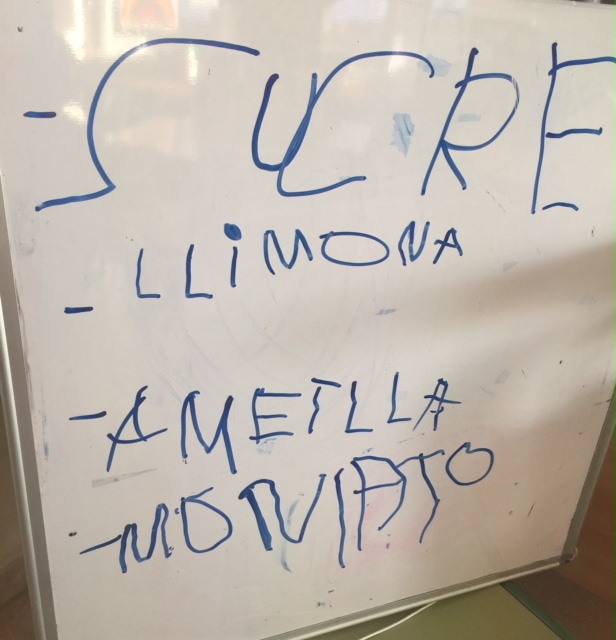 - SUCRE
- LLIMONA
- AMETLLA
- MONIATO